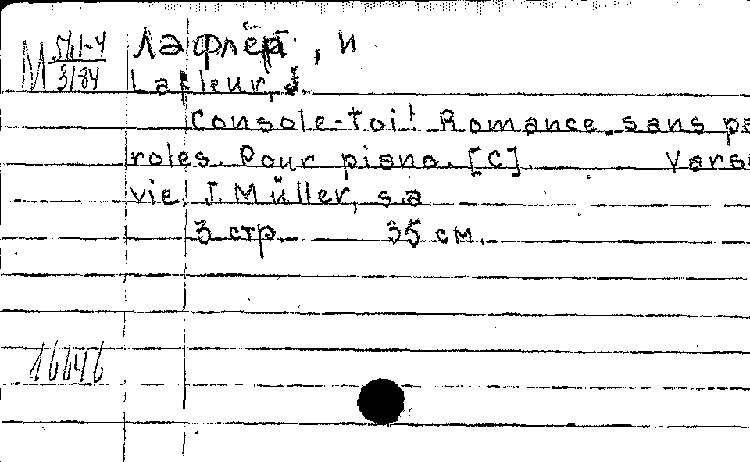 M 561-4
3184
Лафлёр, И
Lafleur, J.
Console-toi! Romance sans pa
roles. Pour piano. [C]. Varso
vie J. Müller, s.a
3 стр. 35 см.
16646